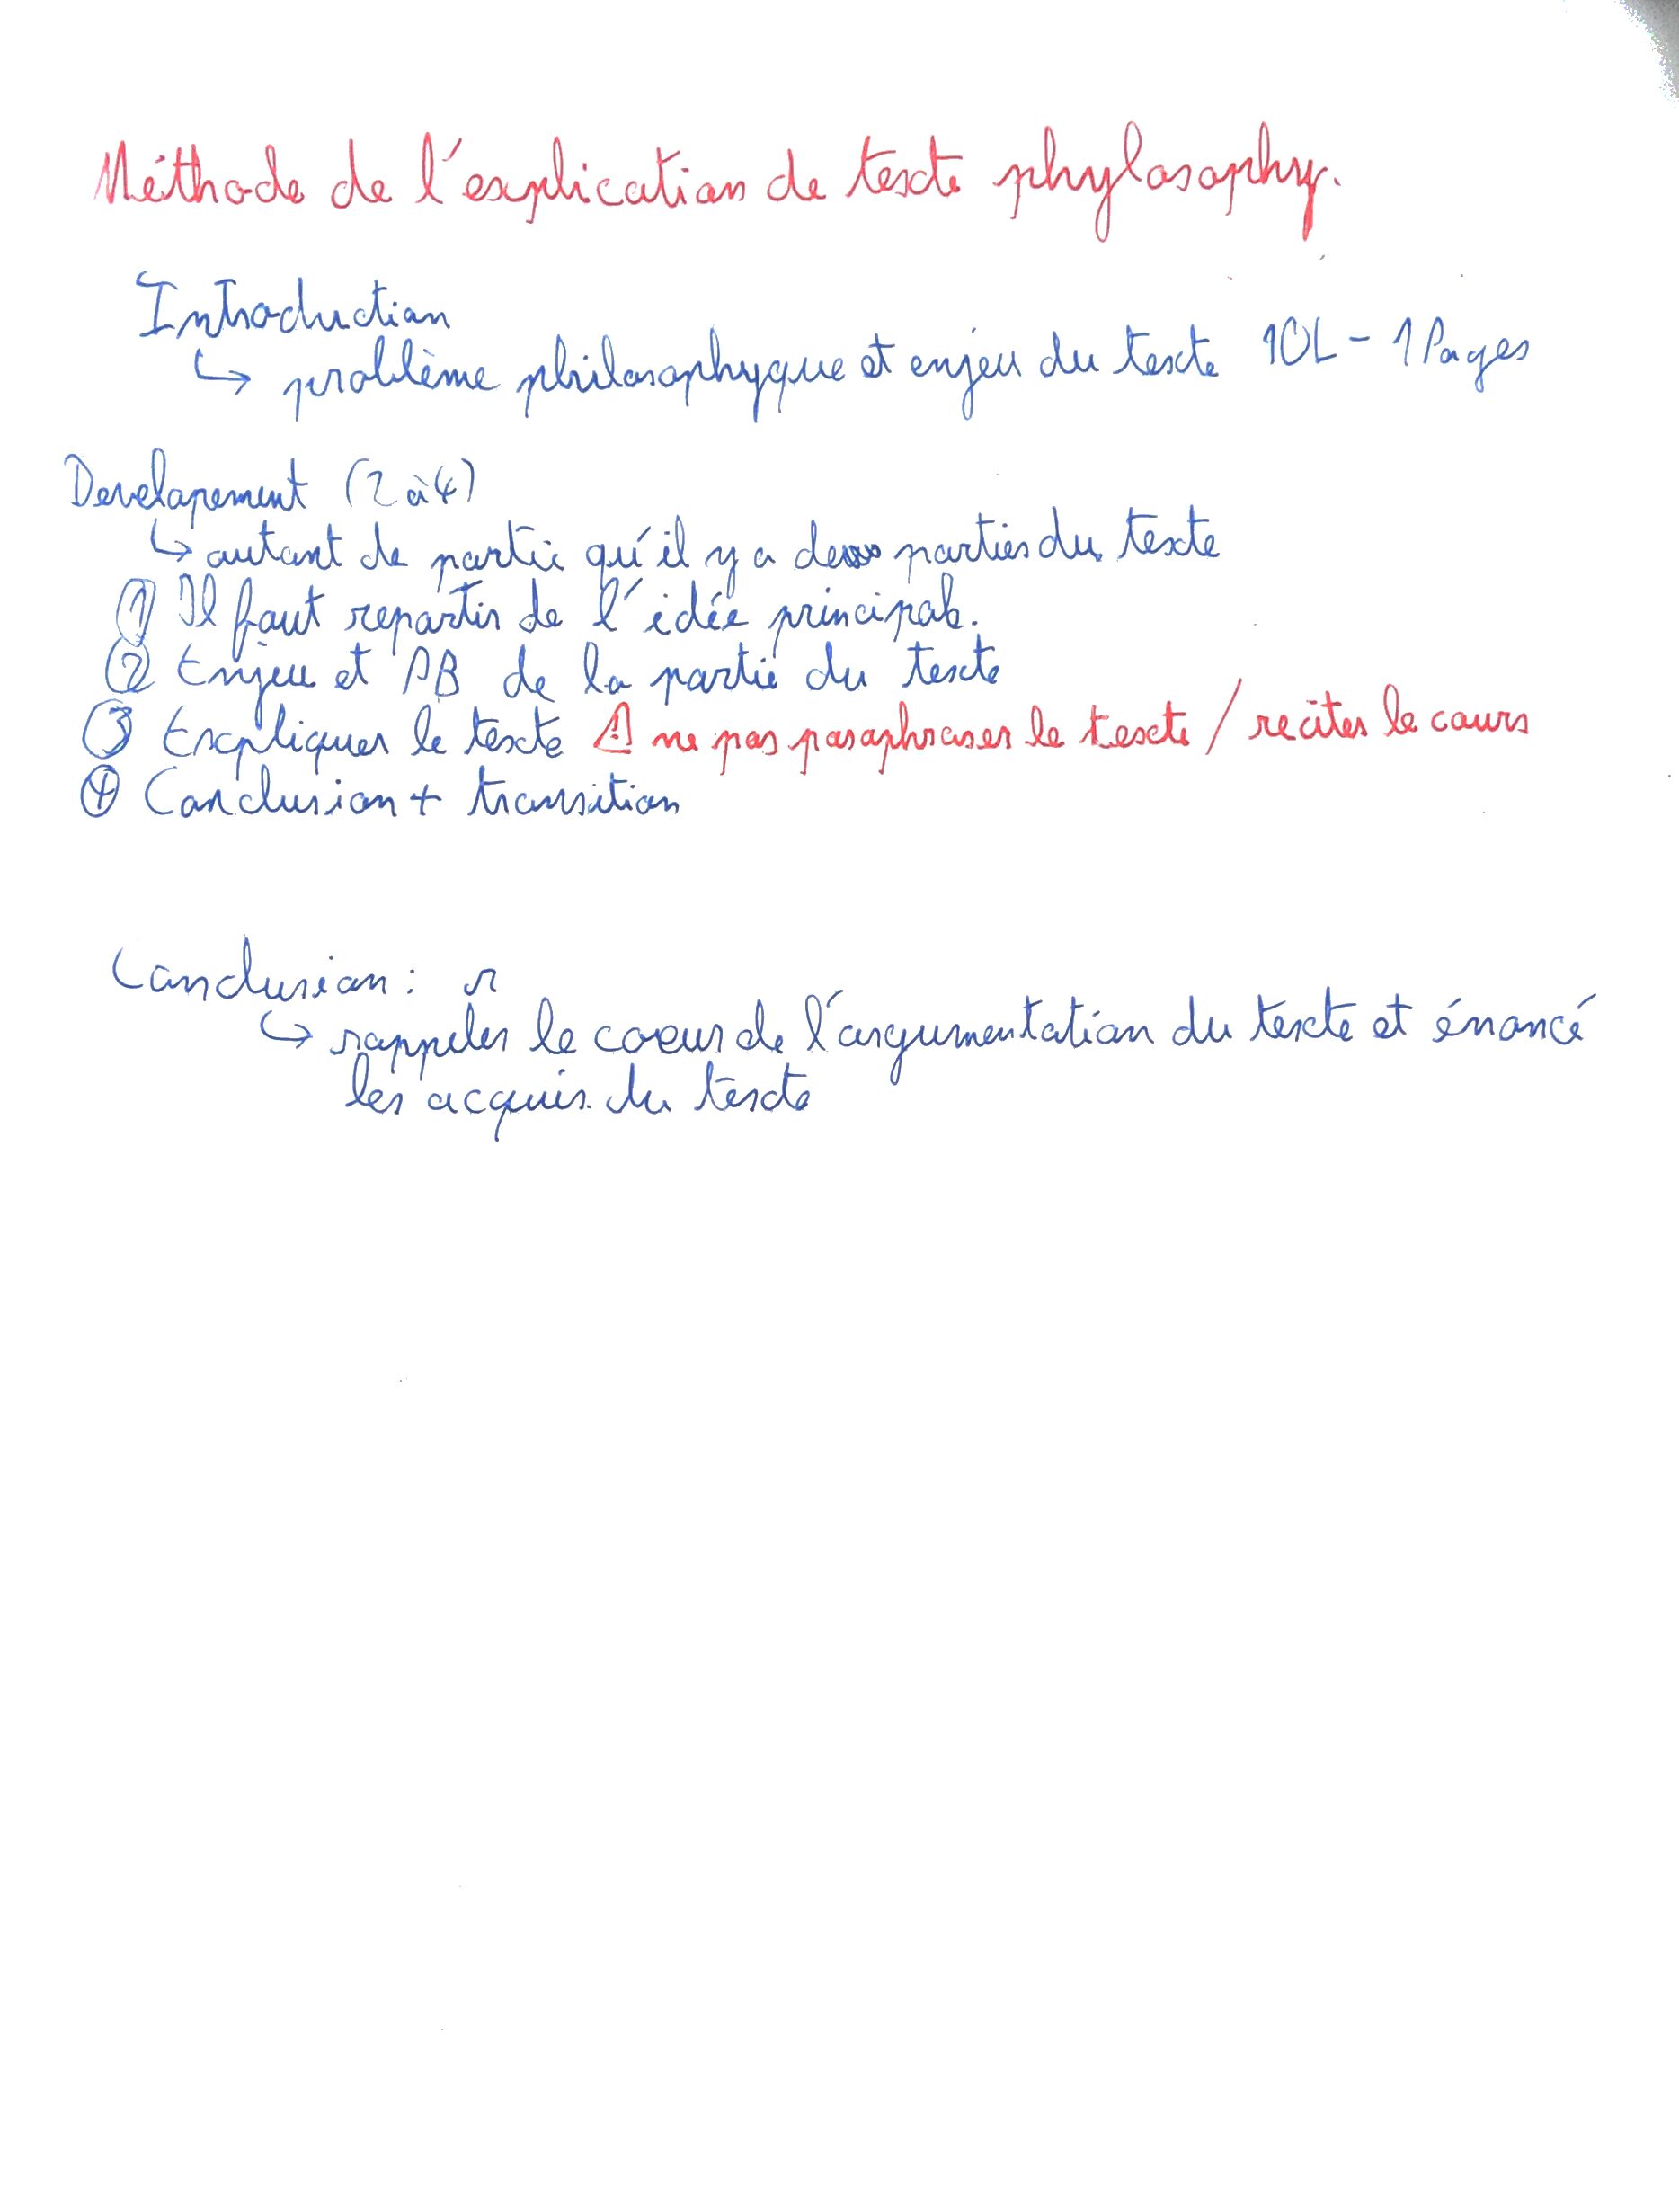 Méthode de l'explication de texte phylosophy.
Introduction
↳ problème philosophyque et enjeu du texte 10L - 1 Pages
Developement (2 à 4)
↳ autant de partie qu'il y a de parties du texte
① Il faut repartir de l'idée principale.
② Enjeu et PB de la partie du texte
③ Expliquer le texte ⚠ ne pas paraphraser le texte / reciter le cours
④ Conclusion + transition
Conclusion :
↳ rappeler le coeur de l'argumentation du texte et énoncé
les acquis du texte